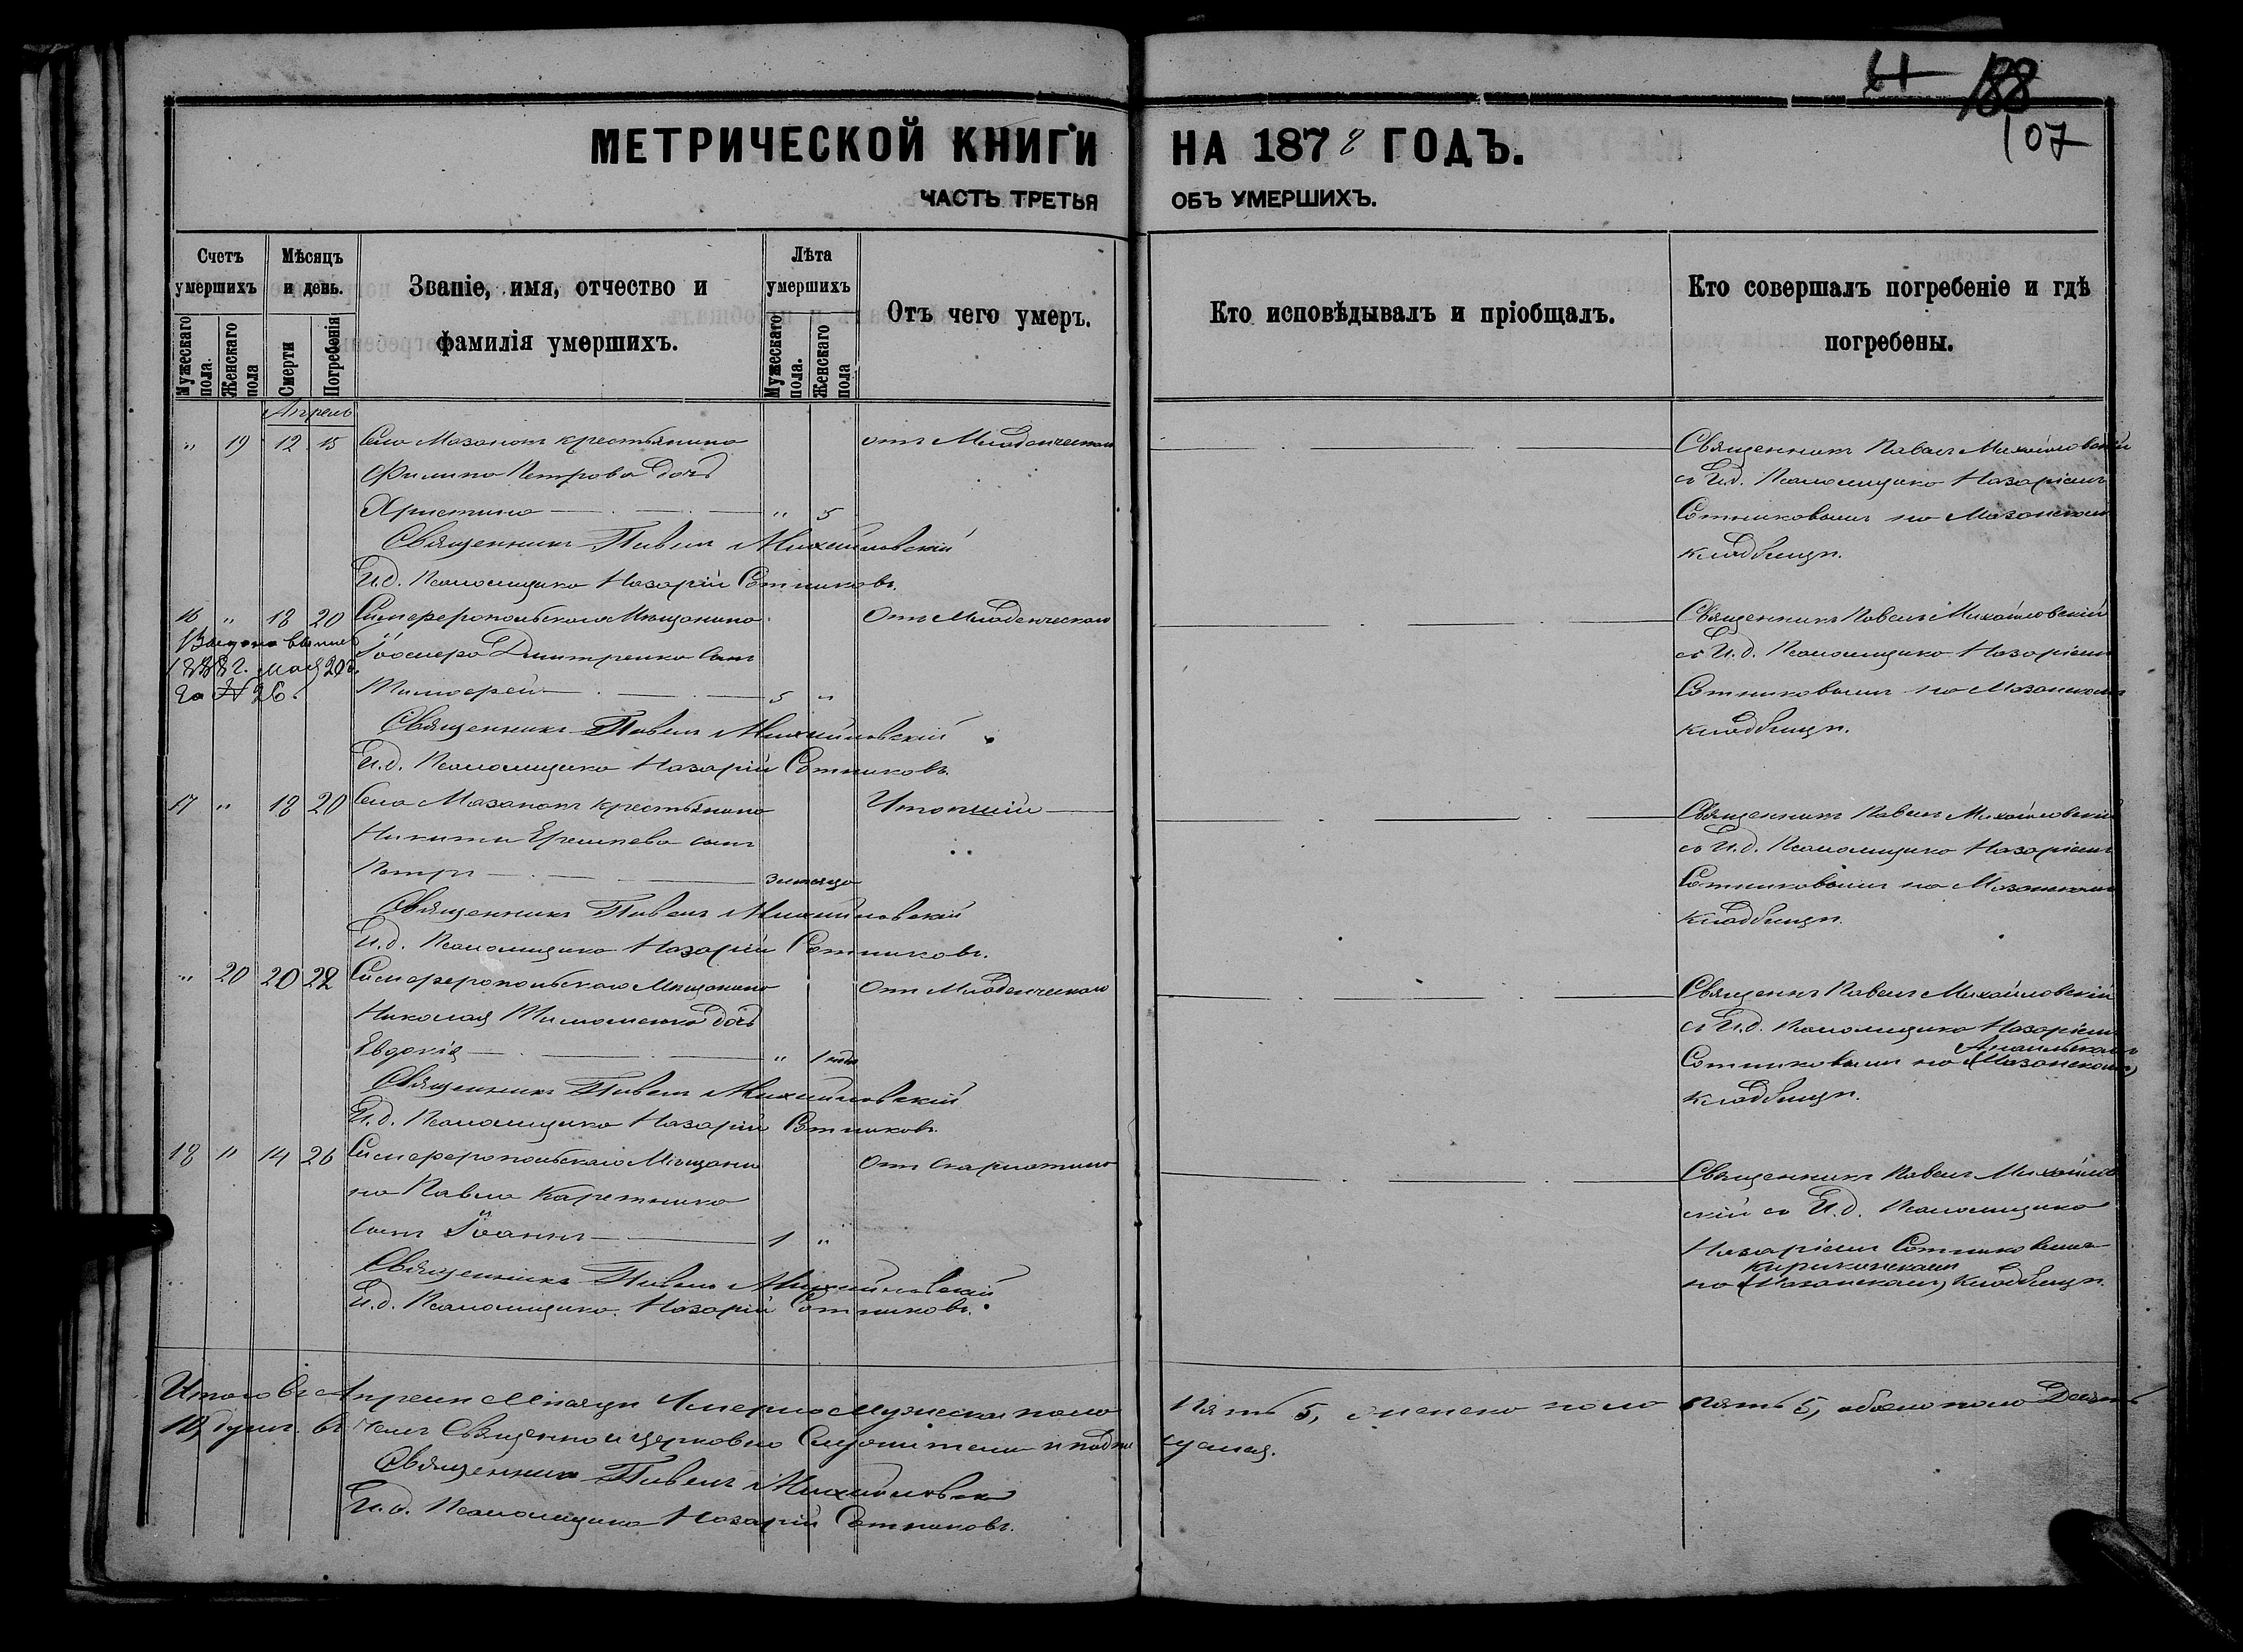 61 188
107
МЕТРИЧЕСКОЙ КНИГИ НА 1878 ГОДЪ.
ЧАСТЬ ТРЕТЬЯ ОБЪ УМЕРШИХЪ.
Счетъ умершихъ
Мужескаго пола.
Женскаго пола
Мѣсяцъ и день.
Смерти
Погребенія
Званіе, имя, отчество и фамилія умершихъ.
Лѣта умершихъ
Мужескаго пола.
Женскаго пола
Отъ чего умеръ.
Кто исповѣдывалъ и пріобщалъ.
Кто совершалъ погребеніе и гдѣ погребены.
Апрель
" 19 12 15 Села Мазанокъ крестьянина отъ Младенческаго Священникъ Павелъ Михайловскій
Филипа Петрова дочь съ И.д. Псаломщика Назаріемъ
Христина " 5 Сотниковымъ на Мазанскомъ
Священникъ Павелъ Михайловскій кладбищѣ.
И.д. Псаломщика Назарій Сотниковъ.
16 " 18 20 Симферопольскаго Мѣщанина Отъ Младенческаго Священникъ Павелъ Михайловскій
1888 г. мая 20 д. Дмитренко сынъ съ И.д. Псаломщика Назаріемъ
за № 26. Тимофей 5 " Сотниковымъ на Мазанскомъ
Священникъ Павелъ Михайловскій кладбищѣ.
И.д. Псаломщика Назарій Сотниковъ.
17 " 18 20 Села Мазанокъ крестьянина Утопшій Священникъ Павелъ Михайловскій
Никиты сынъ съ И.д. Псаломщика Назаріемъ
Петръ 3 месяца Сотниковымъ на Мазанскомъ
Священникъ Павелъ Михайловскій кладбищѣ.
И.д. Псаломщика Назарій Сотниковъ.
" 20 20 22 Симферопольскаго Мѣщанина Отъ Младенческаго Священникъ Павелъ Михайловскій
Николая Тимошенко дочь съ И.д. Псаломщика Назаріемъ
Евдокія " 1 года Сотниковымъ на (Мазанскомъ)
Священникъ Павелъ Михайловскій кладбищѣ.
И.д. Псаломщика Назарій Сотниковъ.
18 " 14 26 Симферопольскаго Мѣщани Отъ Скарлатины Священникъ Павелъ Михайлов
на Павла Каретника скій съ И.д. Псаломщика
сынъ Іоаннъ 1 " Назаріемъ Сотниковымъ
Священникъ Павелъ Михайловскій на (Мазанскомъ) кладбищѣ.
И.д. Псаломщика Назарій Сотниковъ.
Итого въ Апрелѣ Мѣсяцѣ Умерло Мужеска пола Пять 5, женска пола Пять 5, обоего пола Десять
10, душъ. въ чемъ Священно и церковно Служители и подпи суемся.
Священникъ Павелъ Михайловскій
И.д. Псаломщика Назарій Сотниковъ.